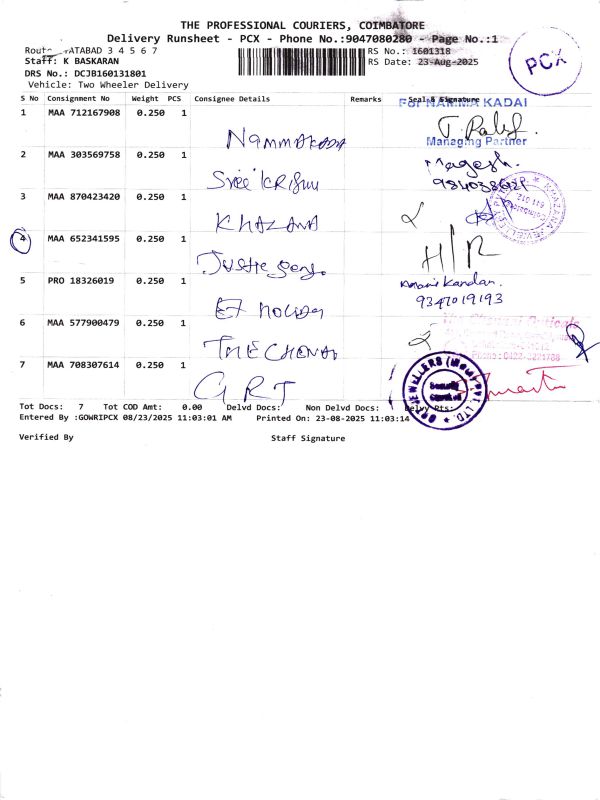 THE PROFESSIONAL COURIERS, COIMBATORE
Delivery Runsheet - PCX - Phone No.:9047080280 - Page No.:1
PCX
Route: ATABAD 3 4 5 6 7
RS No.: 1601318
Staff: K BASKARAN
RS Date: 23-Aug-2025
DRS No.: DCJB160131801
Vehicle: Two Wheeler Delivery
S No Consignment No Weight PCS Consignee Details Remarks Seal & Signature
FOR NAMMA KADAI
1 MAA 712167908 0.250 1 Nammakada
Managing Partner
2 MAA 303569758 0.250 1 Sree Krishna Magesh.
3 MAA 870423420 0.250 1 KHAZANA
4 MAA 652341595 0.250 1 H/R
5 PRO 18326019 0.250 1 Kandan.
9347019193
6 MAA 577900479 0.250 1 THE CHENNAI
Phone: 0422-
7 MAA 708307614 0.250 1 GRT
JEWELLERS PVT. LTD.
Tot Docs: 7 Tot COD Amt: 0.00 Delvd Docs: Non Delvd Docs: Delvy Pts:
Entered By :GOWRIPCX 08/23/2025 11:03:01 AM Printed On: 23-08-2025 11:03:14
Verified By Staff Signature